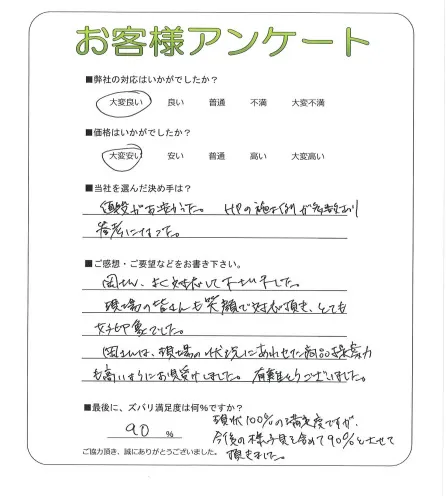 お客様アンケート
■弊社の対応はいかがでしたか？
大変良い 良い 普通 不満 大変不満
■価格はいかがでしたか？
大変安い 安い 普通 高い 大変高い
■当社を選んだ決め手は？
値段がお安かった。 HPの施工例が多数あり
参考になった。
■ご感想・ご要望などをお書き下さい。
岡さん、よく対応して下さいました。
現場の皆さんも笑顔で対応頂き、とても
好印象でした。
岡さんは、現場の状況にあわせた商品提案力
も高いようにお見受けしました。有難うございました。
■最後に、ズバリ満足度は何%ですか？
現状100%の満足度ですが、
90 %
今後の様子見を含めて90%とさせて
頂きました。
ご協力頂き、誠にありがとうございました。